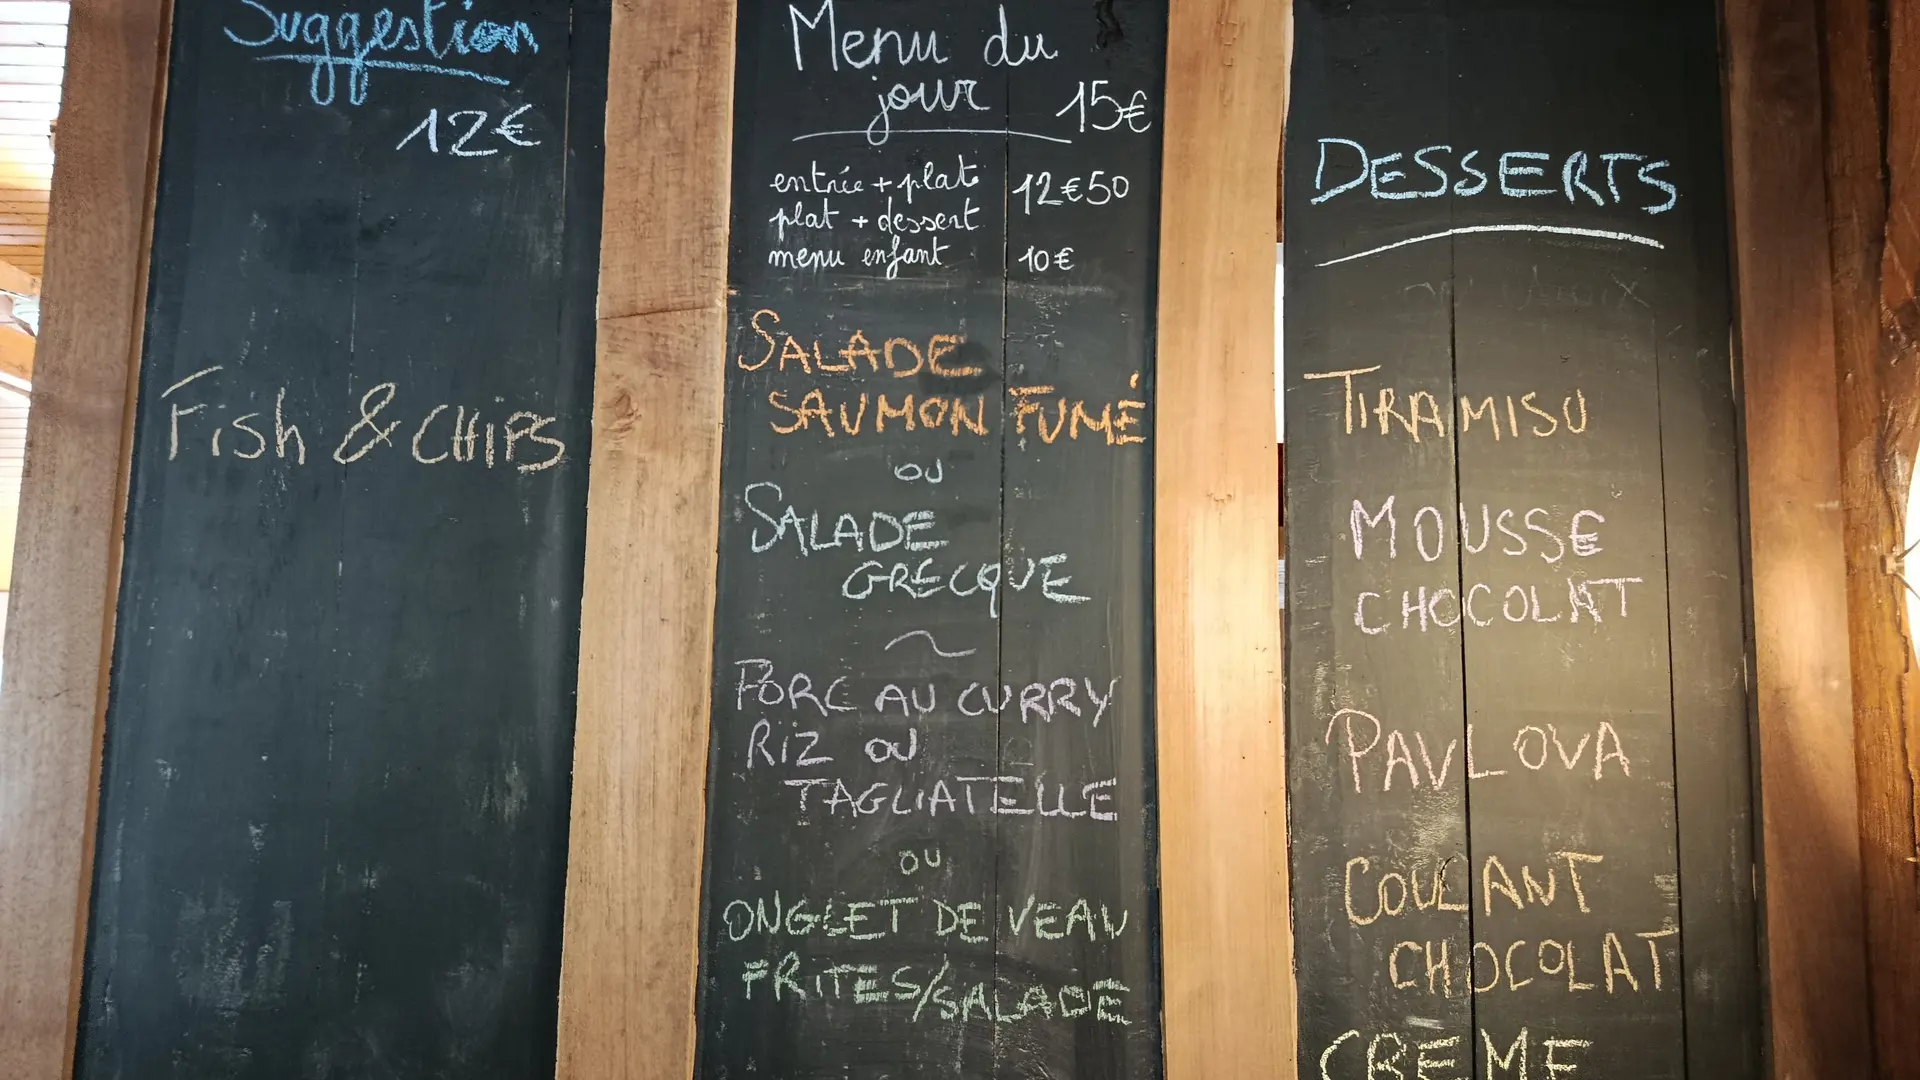 Suggestion
12€
Fish & CHIPS
Menu du
jour 15€
entrée + plat 12€50
plat + dessert
menu enfant 10€
SALADE
SAUMON FUMÉ
ou
SALADE
GRECQUE
~
PORC AU CURRY
RIZ OU
TAGLIATELLE
ou
ONGLET DE VEAU
FRITES/SALADE
DESSERTS
TIRAMISU
MOUSSE
CHOCOLAT
PAVLOVA
COULANT
CHOCOLAT
CREME